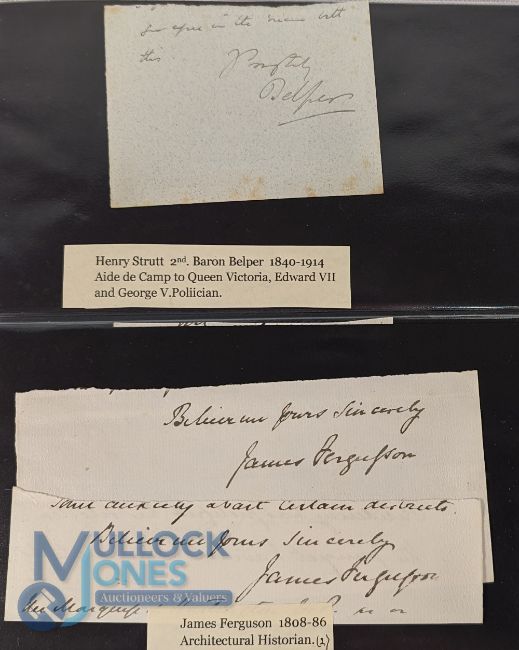 in the
this
Belper
Henry Strutt 2nd. Baron Belper 1840-1914
Aide de Camp to Queen Victoria, Edward VII
and George V.Poliician.
Believe me yours sincerely
James Fergusson
some anxiety about certain districts.
Believe me yours sincerely
James Fergusson
MULLOCK
JONES
Auctioneers & Valuers
James Ferguson 1808-86
Architectural Historian.(1)